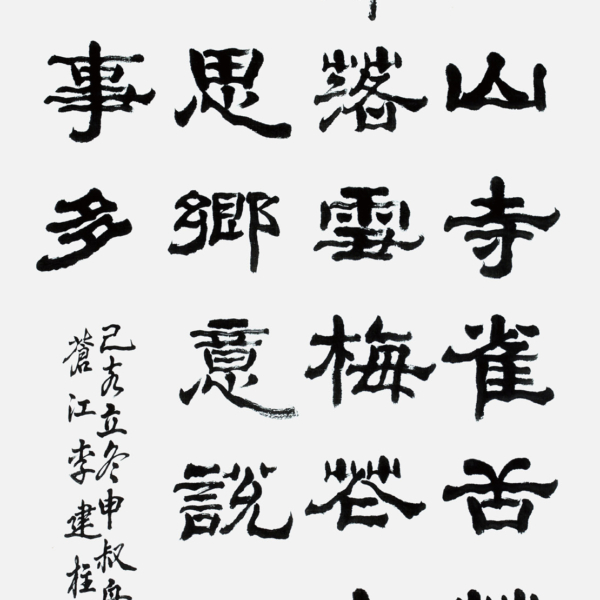 山寺雀舌
落雪梅花
思鄉意說
事多
己亥立冬申叔
蒼江李建柱